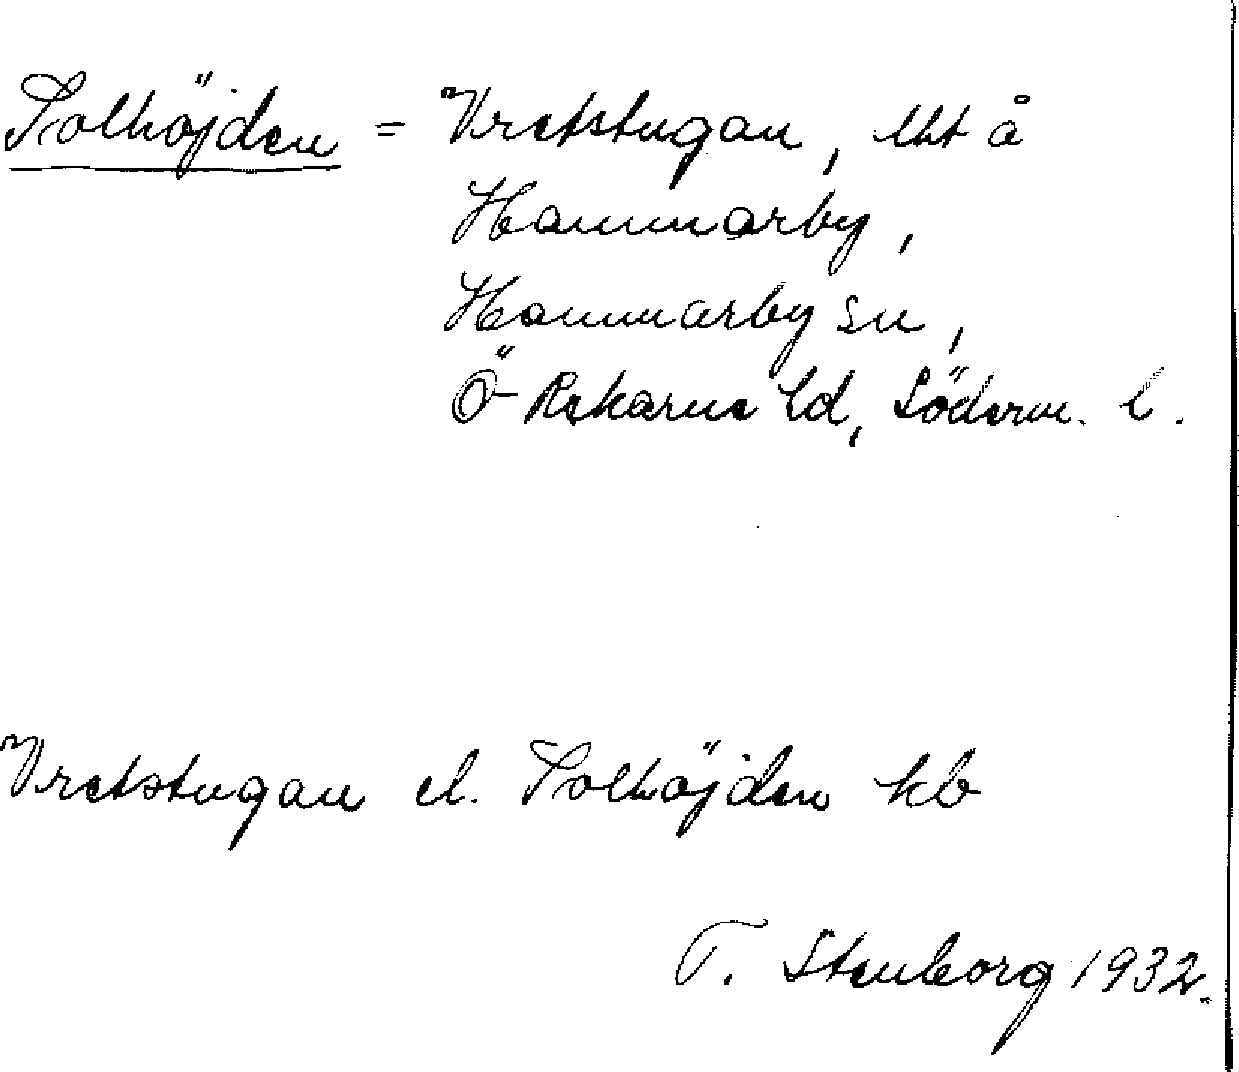 Solhöjden = Vretstugan, lht å
Hammarby,
Hammarby sn,
Ö Rekarne hd, Söderm. l.
Vretstugan el. Solhöjden kb
T. Stenborg 1932.